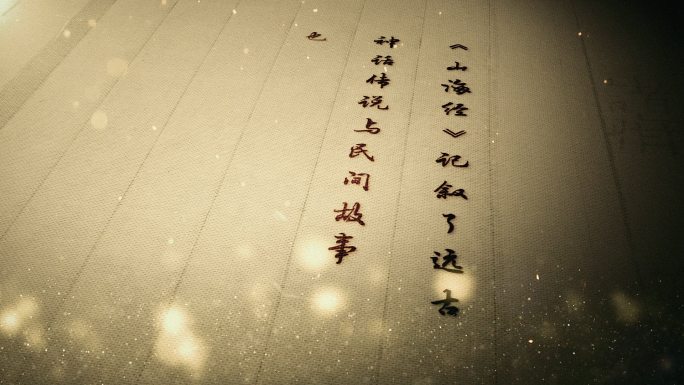 《山海经》记叙了远古
神话传说与民间故事
也